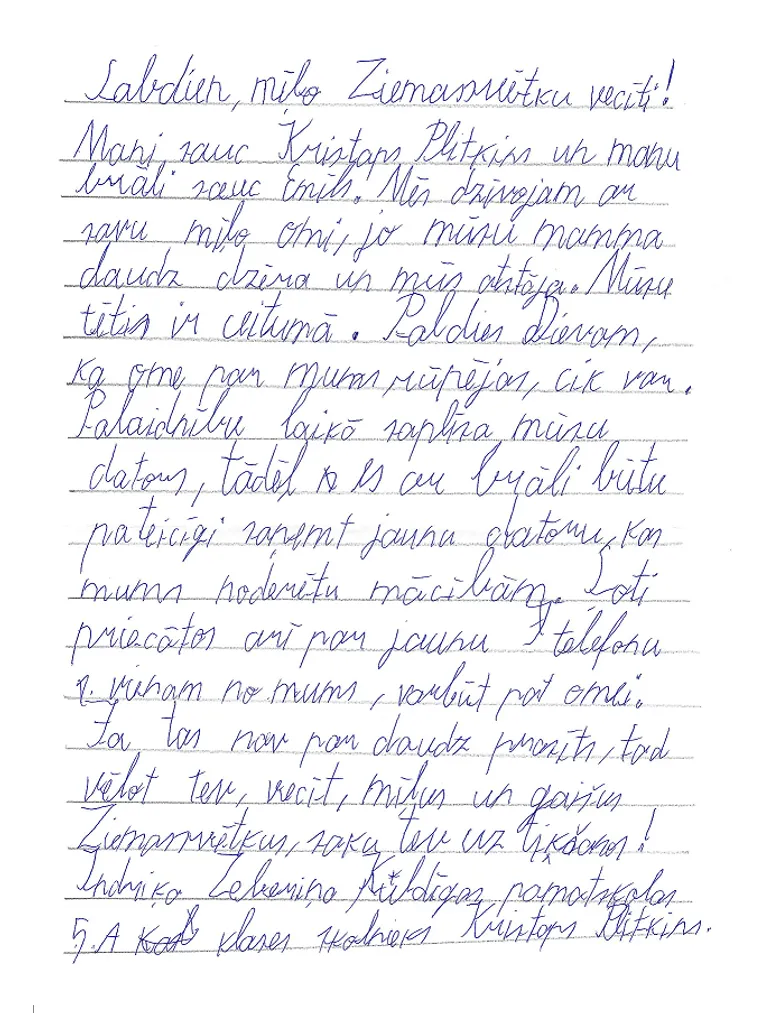 Labdien, mīļo Ziemassvētku vecīti!
Mani sauc Kristaps Plitkins un manu
brāli sauc Emīls. Mēs dzīvojam ar
savu mīļo omi, jo mūsu mamma
daudz dzēra un mūs atstāja. Mūsu
tētis ir cietumā. Paldies Dievam,
ka ome par mums rūpējas, cik var.
Palaidnību laikā saplīsa mūsu
dators, tādēļ es ar brāli būtu
pateicīgi saņemt jaunu datoru, kas
mums noderētu mācībām. Ļoti
priecātos arī par jaunu telefonu
vienam no mums, varbūt pat omei.
Ja tas nav par daudz prasīts, tad
vēlot tev, vecīt, mīļus un gaišus
Ziemassvētkus, saku tev uz tikšanos!
Indriķa Zeberiņa Kuldīgas pamatskolas
5. A klases skolnieks Kristaps Plitkins.